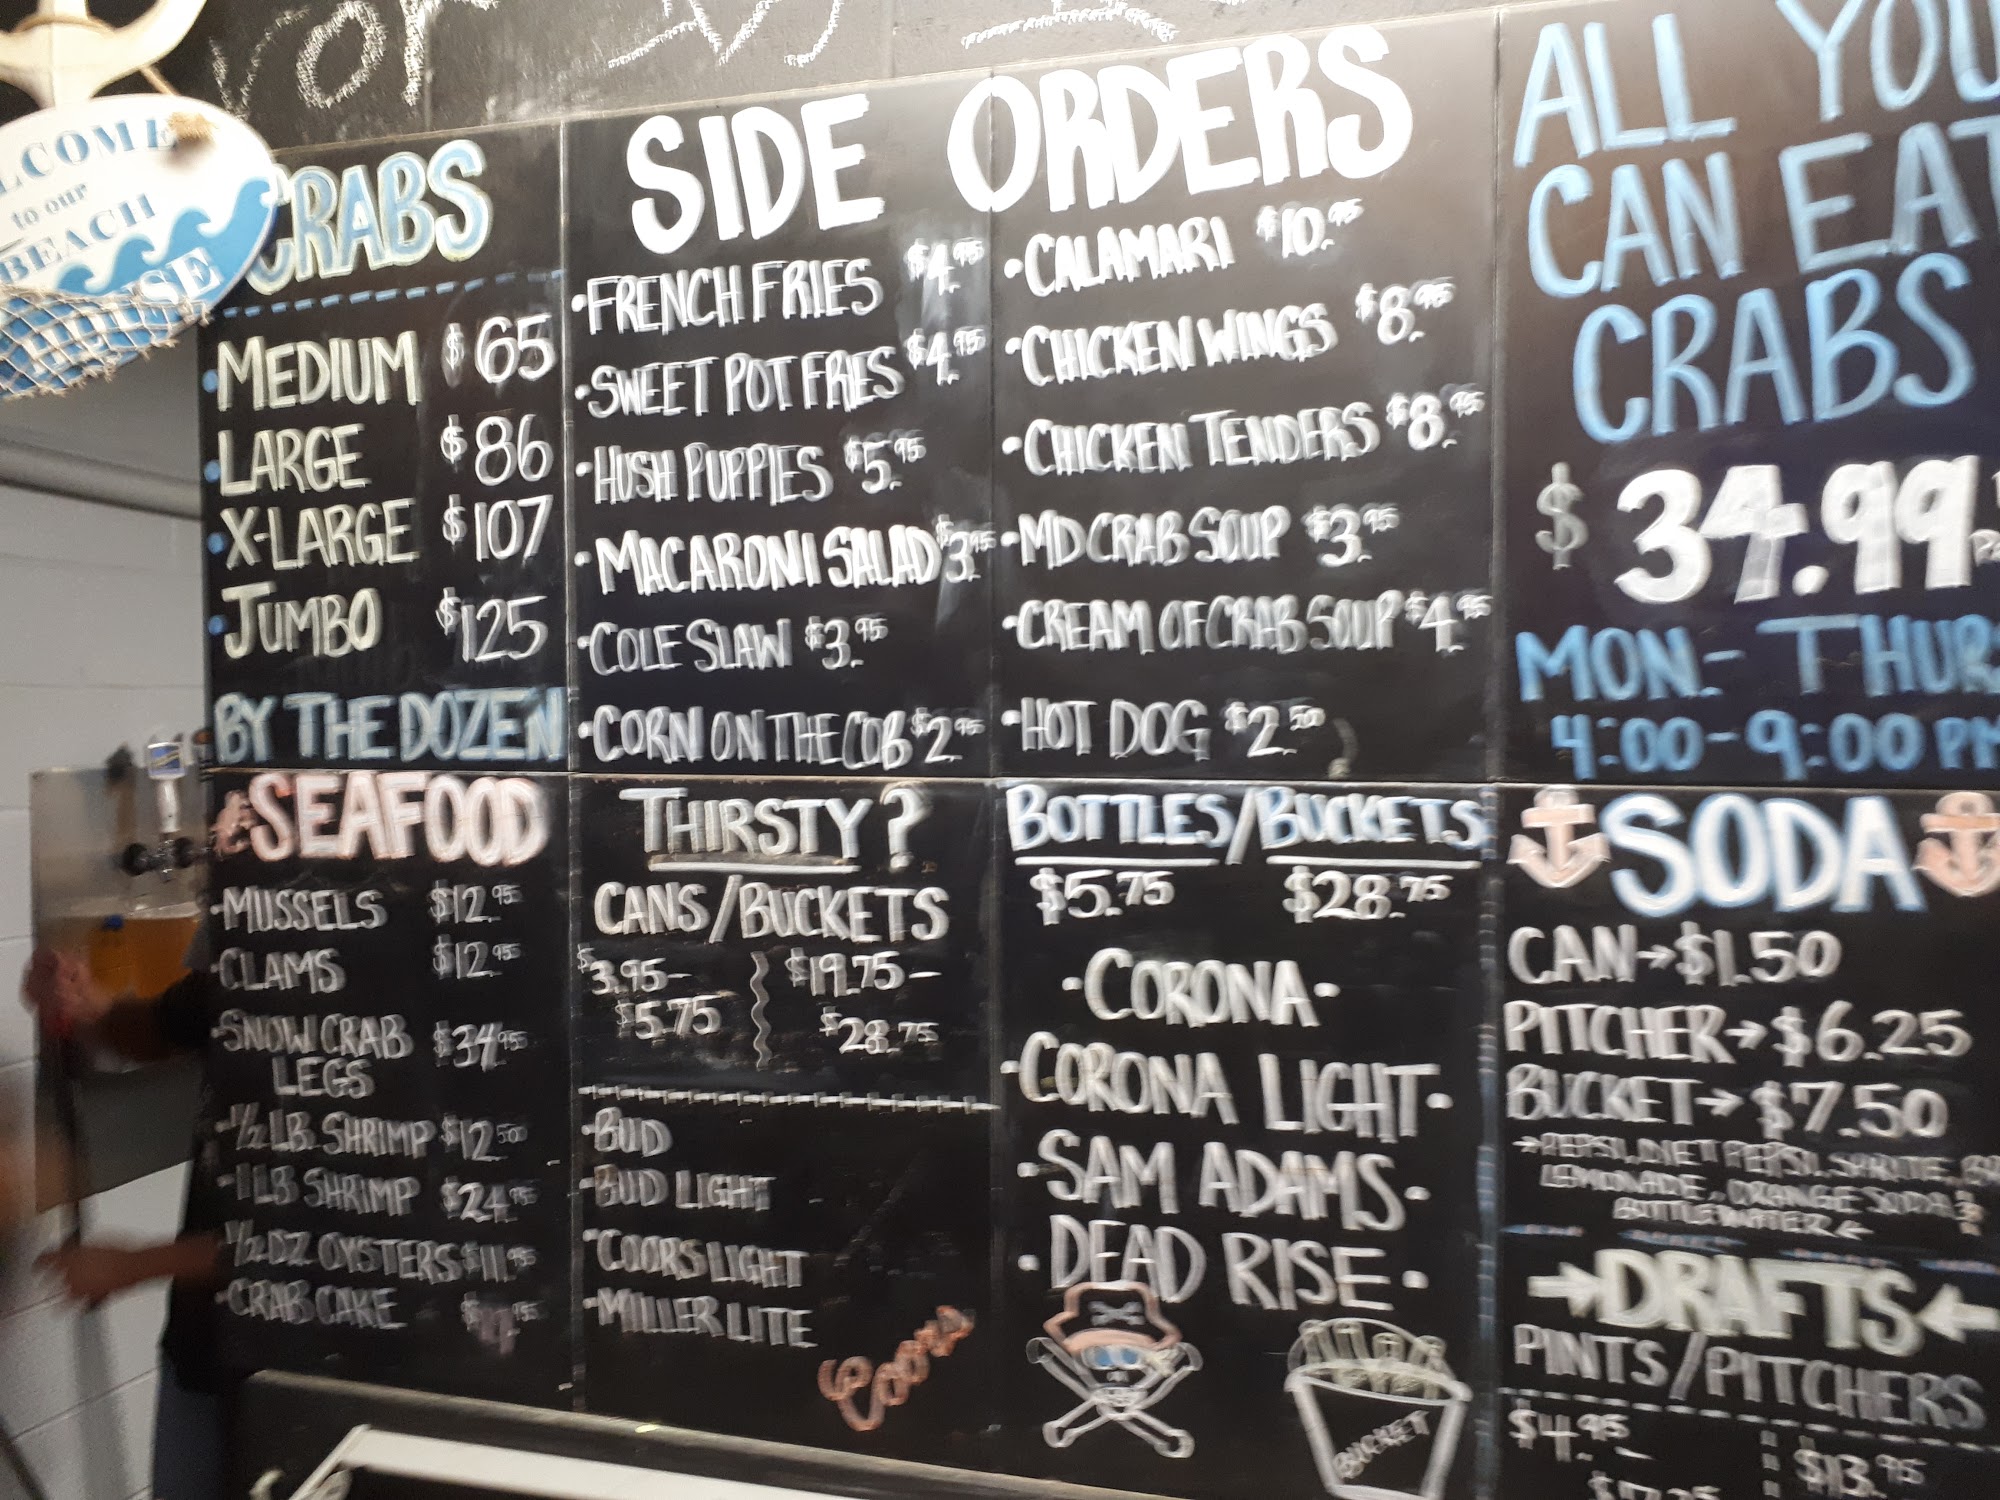 COME
to our
BEACH
CRABS
MEDIUM $65
LARGE $86
X-LARGE $107
JUMBO $125
BY THE DOZEN
SIDE ORDERS
•FRENCH FRIES $4.95
•SWEET POT FRIES $4.95
•HUSH PUPPIES $5.95
•MACARONI SALAD $3.95
•COLE SLAW $3.95
•CORN ON THE COB $2.95
•CALAMARI $10.95
•CHICKEN WINGS $8.95
•CHICKEN TENDERS $8.95
•MD CRAB SOUP $3.95
•CREAM OF CRAB SOUP $4.95
•HOT DOG $2.50
ALL YOU
CAN EAT
CRABS
$34.99
MON.-THURS
4:00-9:00 PM
SEAFOOD
•MUSSELS $12.95
•CLAMS $12.95
•SNOW CRAB $34.95
LEGS
•1/2 LB. SHRIMP $12.50
•1 LB SHRIMP $24.95
•1/2 DZ OYSTERS $11.95
•CRAB CAKE
THIRSTY?
CANS/BUCKETS
$3.95- $19.75-
$5.75 $28.75
•BUD
•BUD LIGHT
•COORS LIGHT
•MILLER LITE
Coors
BOTTLES/BUCKETS
$5.75 $28.75
•CORONA•
•CORONA LIGHT•
•SAM ADAMS•
•DEAD RISE•
BUCKET
SODA
CAN→$1.50
PITCHER→$6.25
BUCKET→$7.50
→PEPSI, DIET PEPSI, SPRITE,
LEMONADE, ORANGE SODA
BOTTLE WATER←
→DRAFTS←
PINTS/PITCHERS
$4.95- $13.95